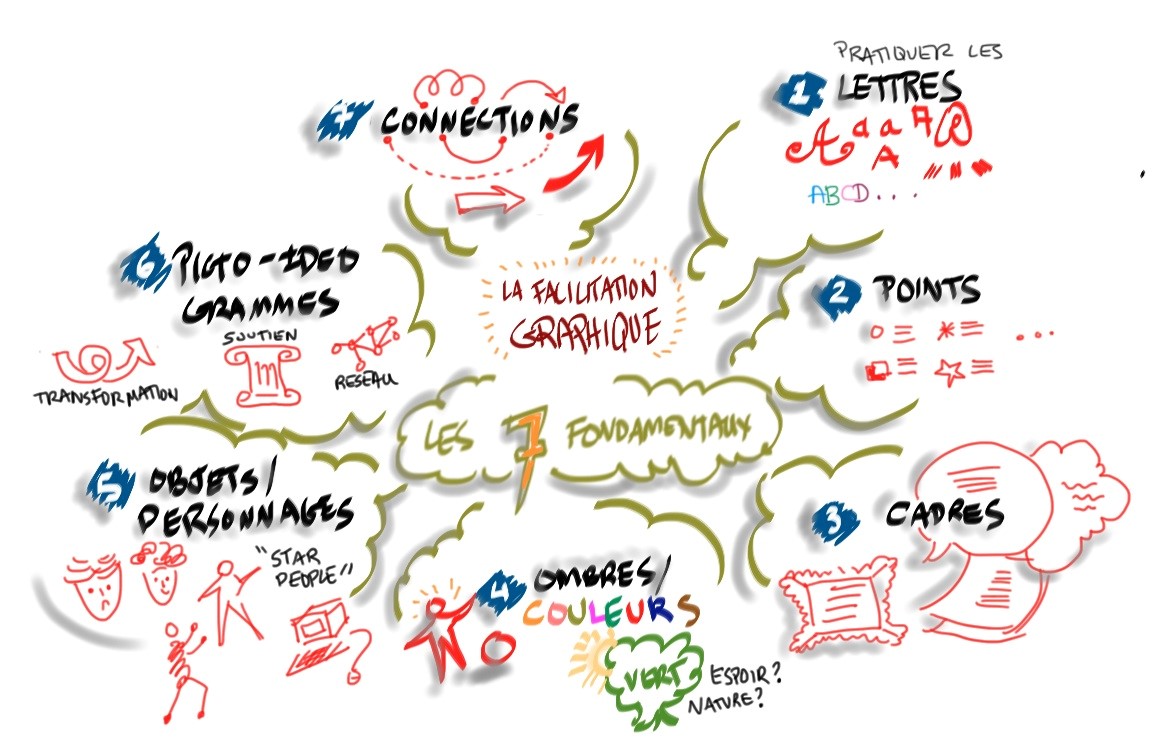 LA FACILITATION
GRAPHIQUE
LES 7 FONDAMENTAUX
PRATIQUER LES
1 LETTRES
A a a A a
A
ABCD...
2 POINTS
3 CADRES
4 OMBRES/
COULEURS
VERT
ESPOIR?
NATURE?
5 OBJETS/
PERSONNAGES
"STAR
PEOPLE"
6 PICTO-IDEO
GRAMMES
TRANSFORMATION
SOUTIEN
RESEAU
7 CONNECTIONS